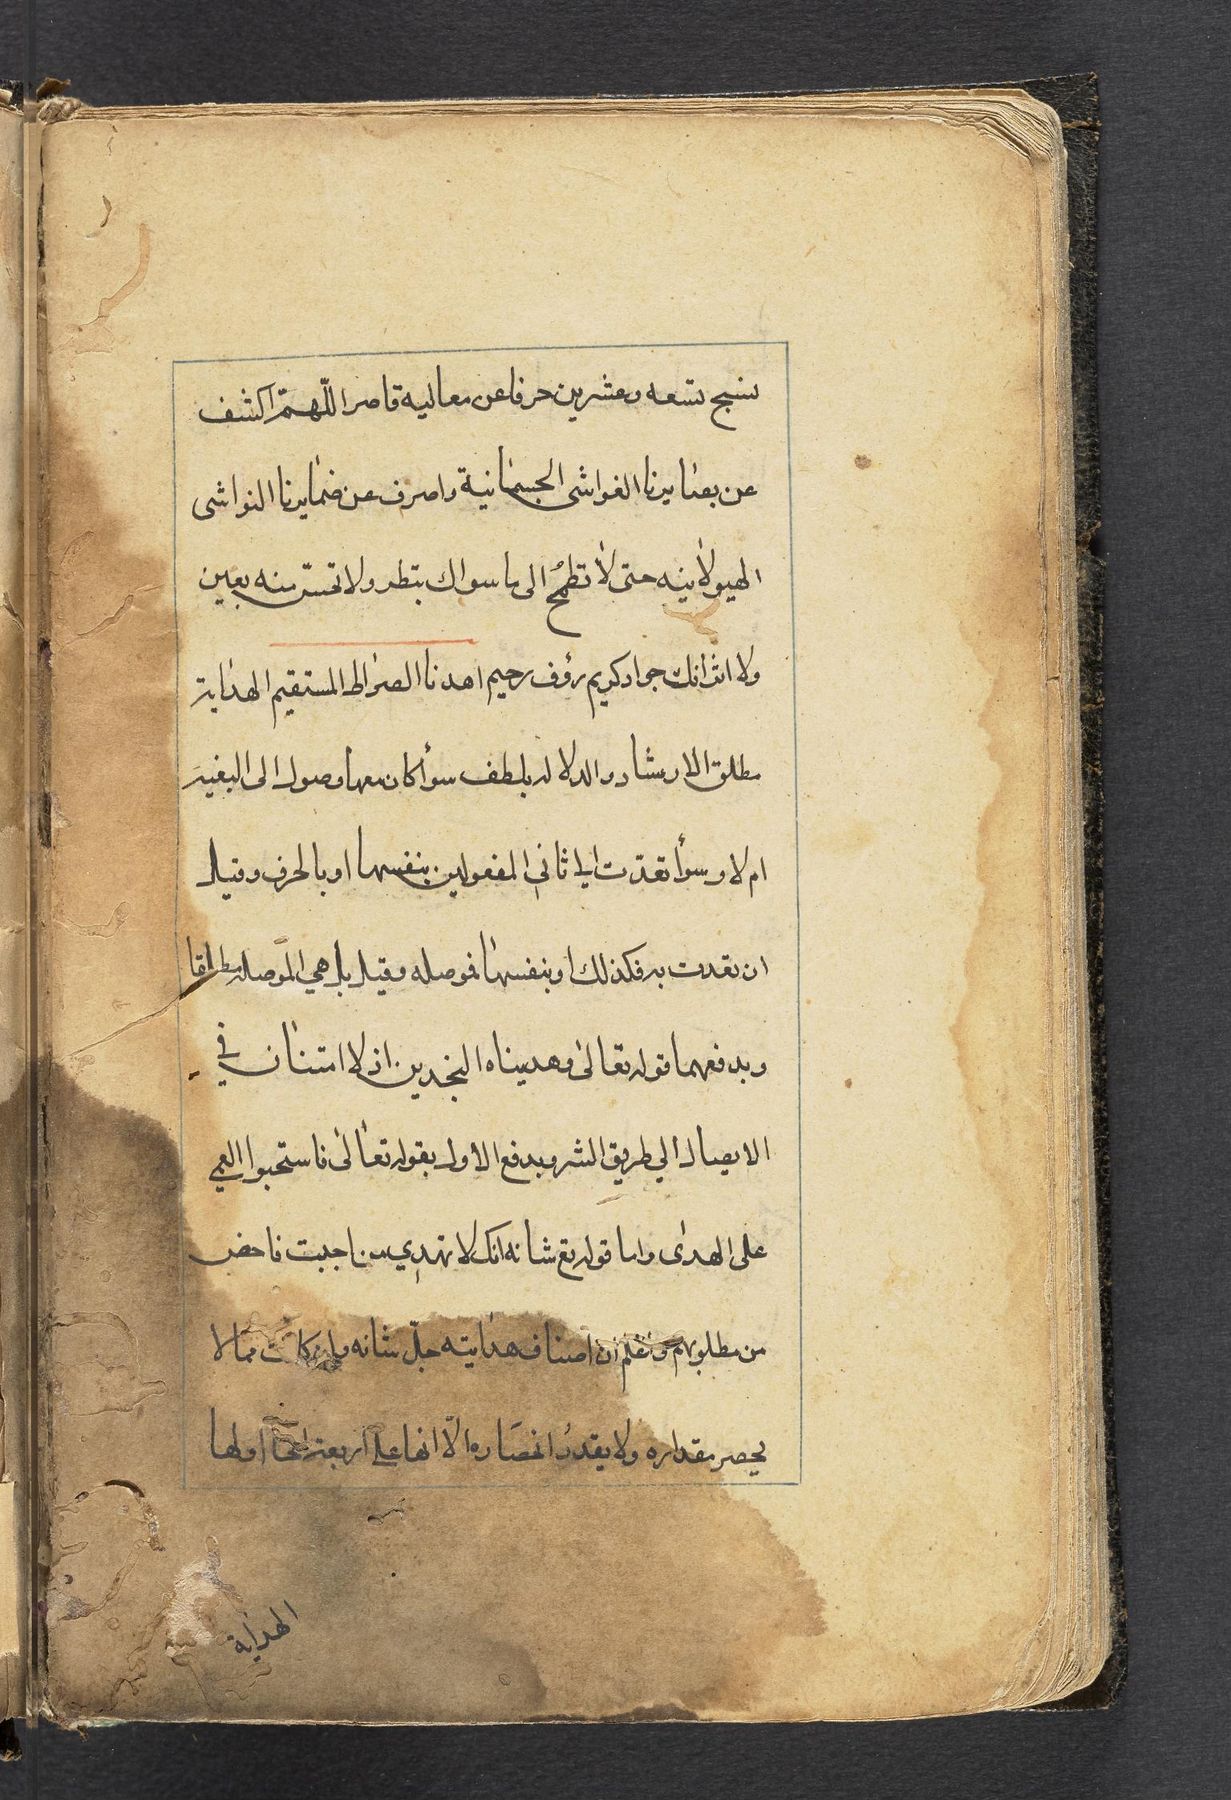 نسج تسعه وعشرين حرفا عن معاليه قاصر اللّهمّ اكشف
عن بصائرنا الغواشى الجسمانية واصرف عن ضمايرنا النواشى
الهيولانيه حتى لا تطمح الى ما سواك بنظر ولا تحسّ منه بعين
ولا اثر انك جواد كريم رؤف رحيم اهدنا الصراط المستقيم الهداية
مطلق الارشاد والدلاله بلطف سوأ كان معها وصول الى البغية
ام لا وسوأ تعدّت الى ثاني المفعولين بنفسها او بالحرف وقيل
ان تعدت به فكذلك او بنفسها فموصله وقيل بل هي الموصله مطلقا
ويدفعهما قوله تعالى وهديناه النجدين اذ لا امتنان في
الايصال الي طريق الشر ويدفع الاول بقوله تعالى فاستحبوا العمي
على الهدى واما قوله تع شانه انك لا تهدي من احببت فاحض
من مطلوبهم واعلم ان اصناف هدايته جلّ شانه وان كانت مما لا
يحصر مقداره ولا يقدر انحصاره الّا انها على اربعة انحا اولها
الهداية